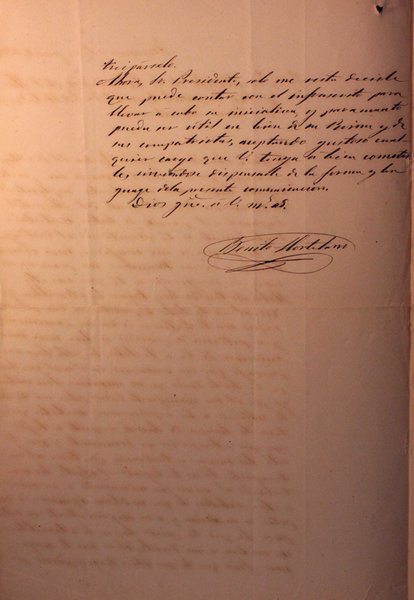 Ahora, Sr. Presidente, solo me resta decirle
que puede contar con el infrascrito para
llevar a cabo su iniciativa, y para cuanto
pueda ser útil en bien de su Reina y de
sus compatriotas, aceptando gustoso cual
quier cargo que V. tenga a bien
dispensable de la forma y len
guage de la presente comunicacion.
Dios gũe. a V. m.s a.s
Benito